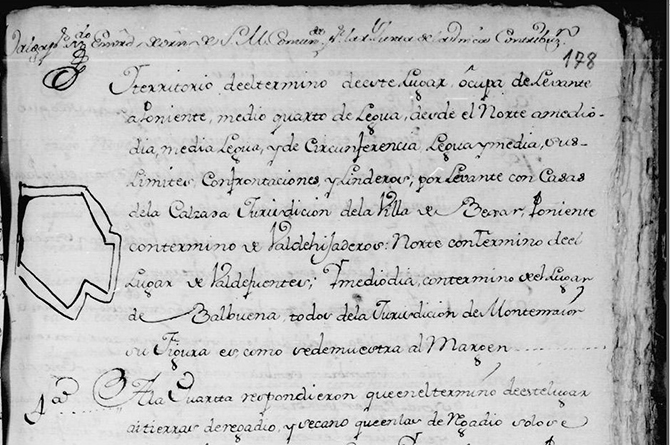 178
territorio deel termino deeste Lugar, ocupa de Levante
a Poniente, medio quarto de Legua, desde el Norte amedio-
dia, media Legua, y de Circunferencia, Legua y media, sus-
Limites, Confrontaciones, y Linderos, por Levante con Casas
dela Calzada Jurisdicion dela Villa de Bexar, Poniente
contermino de Valdehijaderos: Norte con Termino deel
Lugar de Valdefuentes; Ymediodia, contermino del Lugar
de Balbuena, todos dela Jurisdicion de Montemaior,
su Figura es como sedemuestra al Margen
4ª Ala Quarta respondieron queenel termino deestelugar
ai tierras deregadio, y secano queenlas de Regadio solo se